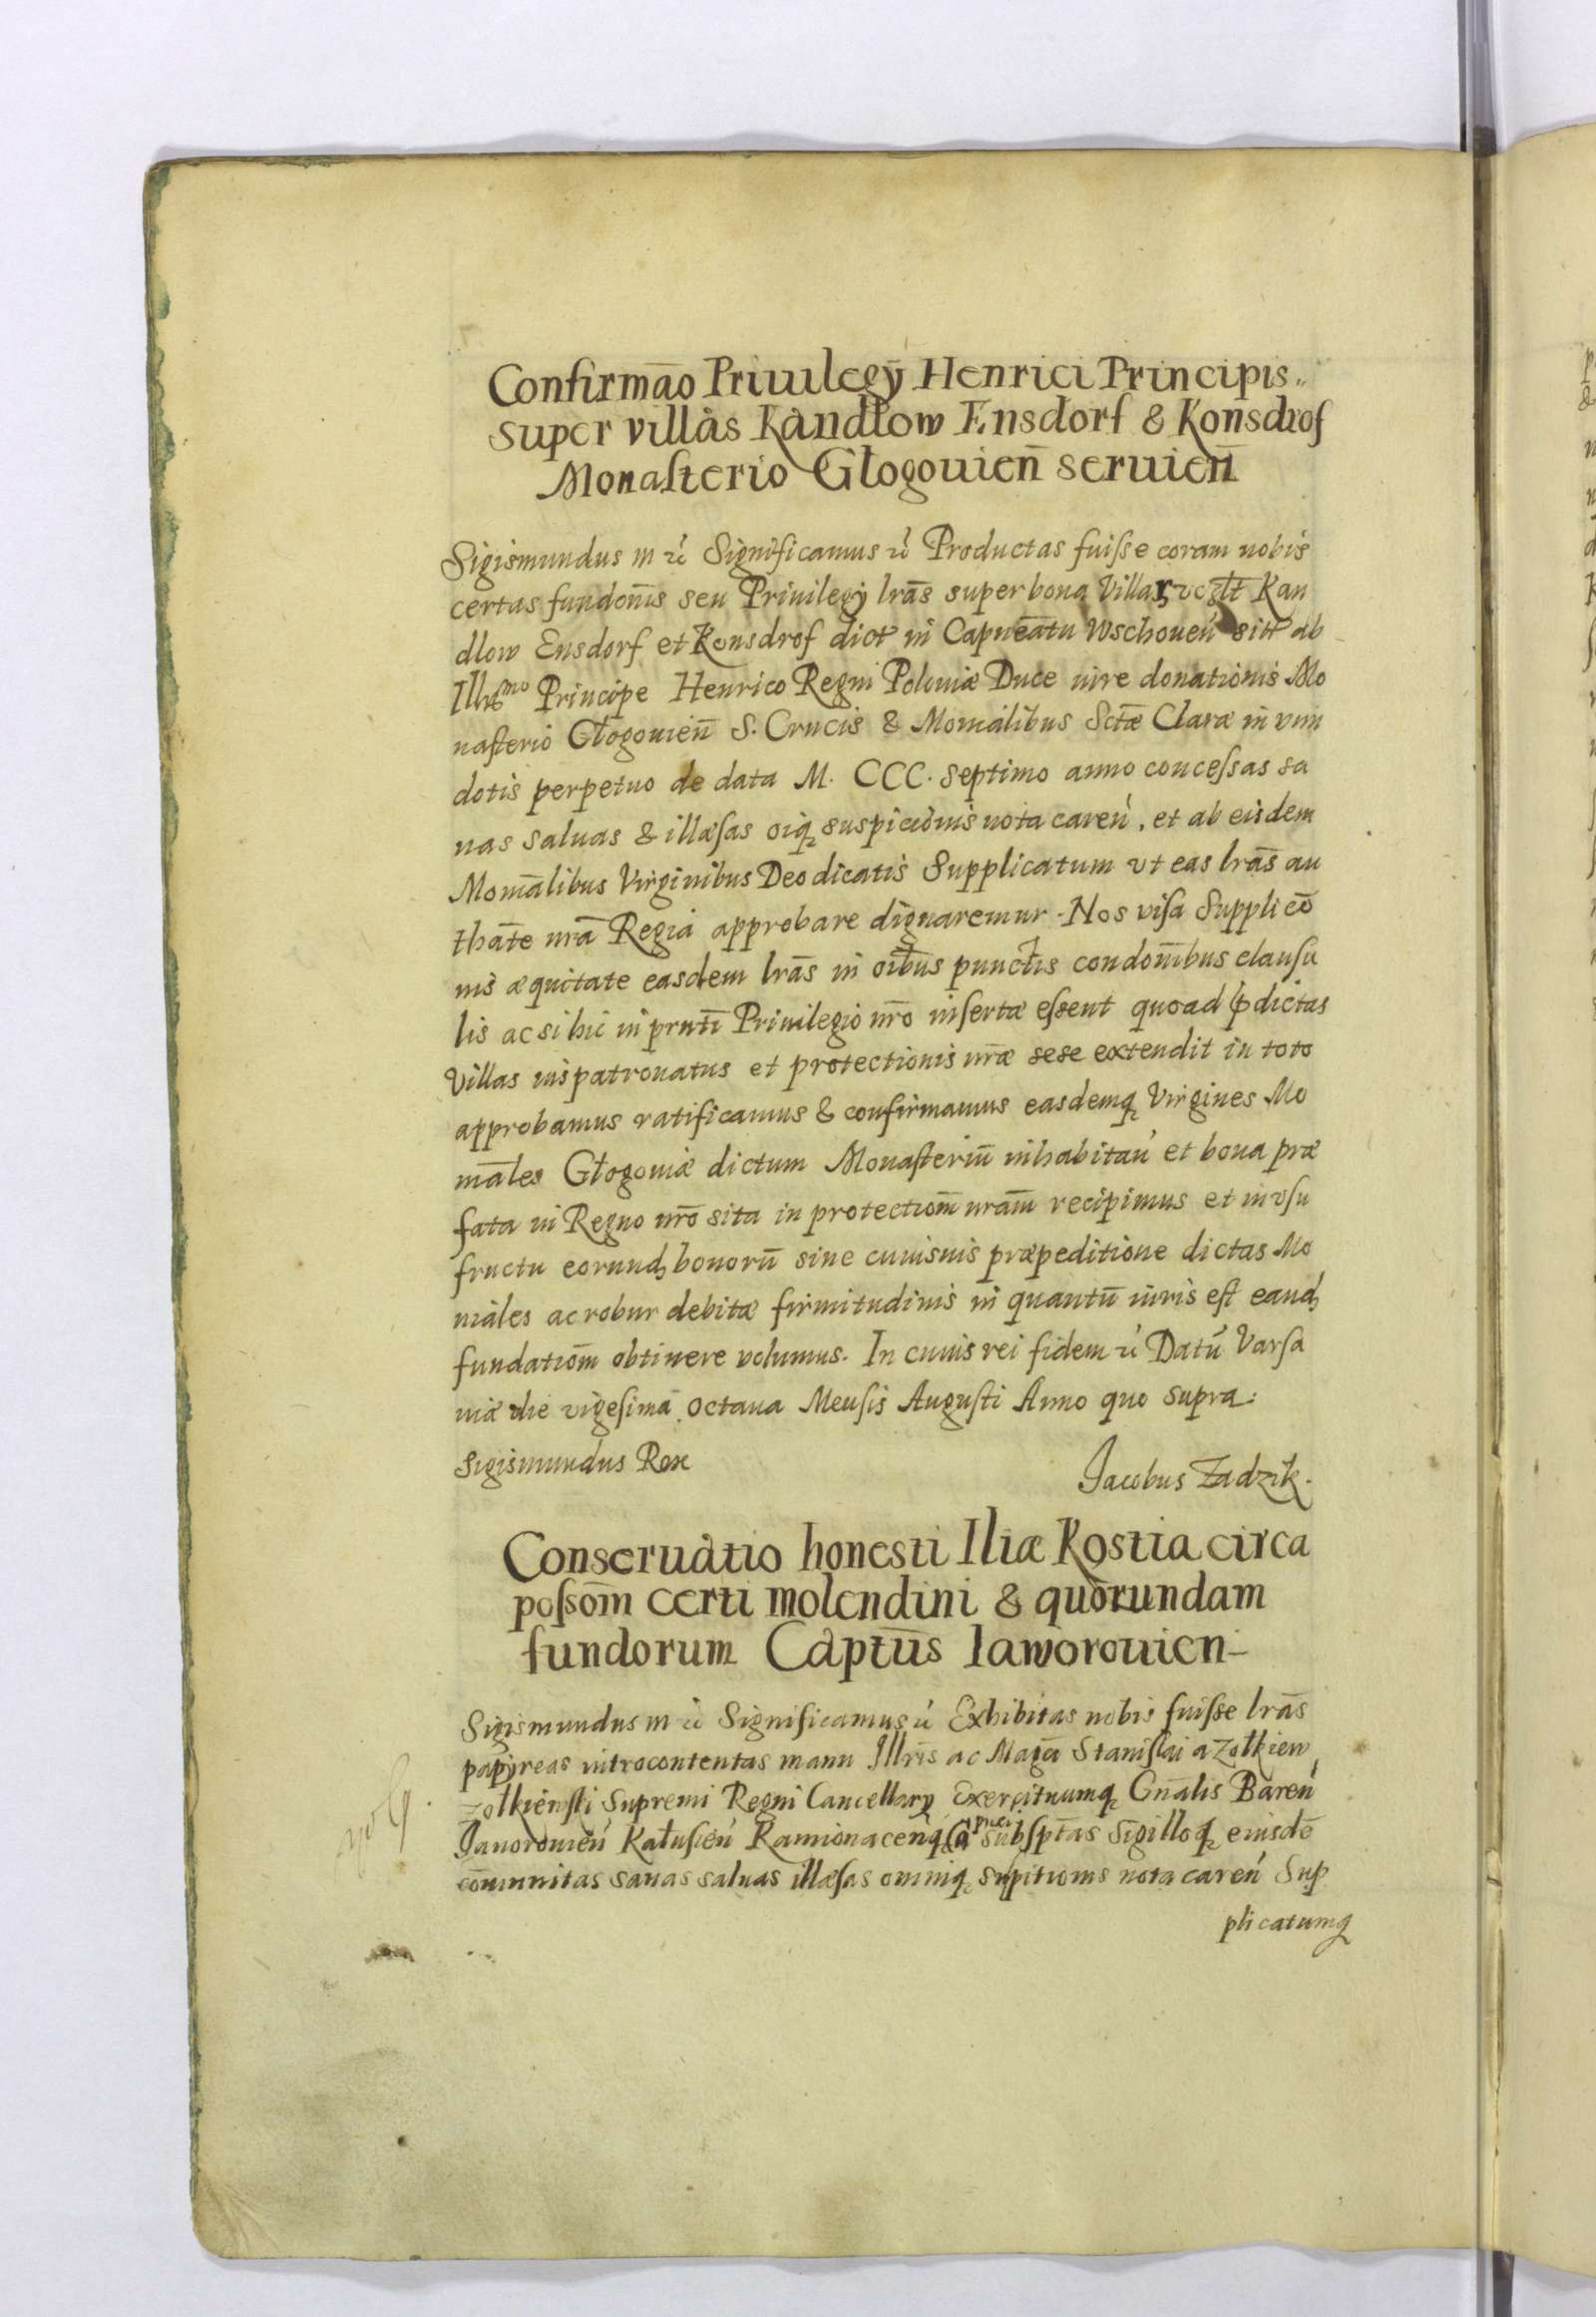 Confirmāo Priuilegÿ Henrici Principis
super villas Kandłow Ensdorf & Konsdrof
Monaſterio Głogouien̄ seruien̄
Sigismundus III rć Significamus rć Productas fuiſse coram nobis
certas fundōnis seu Priuilegÿ lrās super bona Villaꝝ vczłt Kan
dlow Ensdorf et Konsdrof dict in Capnēatu Wschoueń sitt ab
Illrs͞mo Principe Henrico Regni Poloniæ Duce iure donationis Mo
naſterio Głogouien̄ S. Crucis & Monialibus Sctæ Claræ in vim
dotis perpetuo de data M. CCC. Septimo anno conceſsas sa
nas saluas & illæſas oiq̨ suspicionis nota careń, et ab eisdem
Moniālibus Virginibus Deo dicatis Supplicatum vt eas lrās au
thāte nrā Regia approbare dignaremur. Nos viſa Supplicō
nis æquitate easdem lrās in oibus punctis condōnibus clauſu
lis ac si hic in pnti Priuilegio nrō inſertæ eſsent quoad p̄dictas
Villas ius patronatus et protectionis nr̄æ sese extendit in toto
approbamus ratificamus & confirmamus easdemq̨ Virgines Mo
niāles Głogouiæ dictum Monaſteriū inhabitań et bona præ
fata in Regno nrō sita in protectiōm nrām recipimus et in vſu
fructu eorund. bonorū sine cuiusuis præpeditione dictas Mo
niales ac robur debitæ firmitudinis in quantū iuris eſt eand.
fundatiōm obtinere volumus. In cuius rei fidem rć Datū Varſa
uiæ die vigeſima octaua Menſis Auguſti Anno quo supra.
Sigismundus Rex
Jacobus Zadzik.
Conseruatio honesti Iliæ Kostia circa
poſsōm certi molendini & quorundam
fundorum Captūs Iaworouien
Sigismundus III rć Significamus rć Exhibitas nobis fuiſse lrās
papyreas introcontentas manu Illris ac Magci Staniſlai a Zołkiew
Zołkiewſki Supremi Regni Cancellarÿ Exercituumq̨ Gnālis Bareń
Jauorouień Kałuſień Kamionaceńq̨ Cap̄nei subſptas Sigilloq̨ eiusdē
cōmunitas sanas saluas illæſas omniq̨ suſpitionis nota careń Sup
plicatumq̨